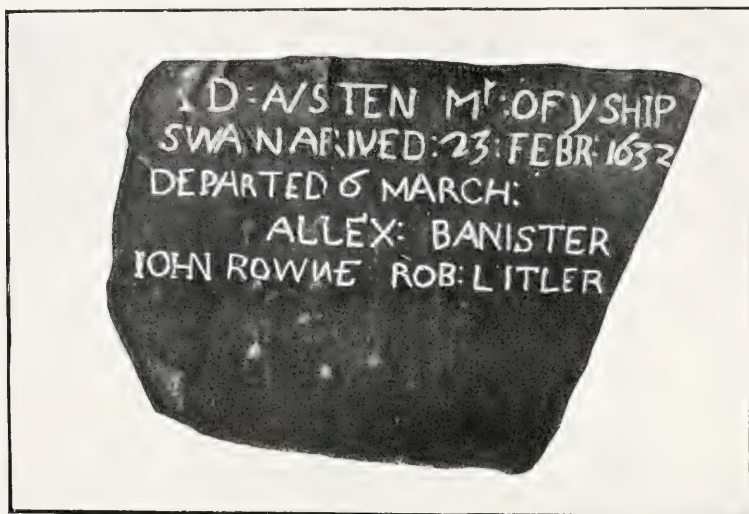 I D: AVSTEN Mr: OF y SHIP
SWAN ARIVED: 23: FEBR: 1632
DEPARTED 6 MARCH:
ALLEX: BANISTER
IOHN ROWNE ROB: LITLER